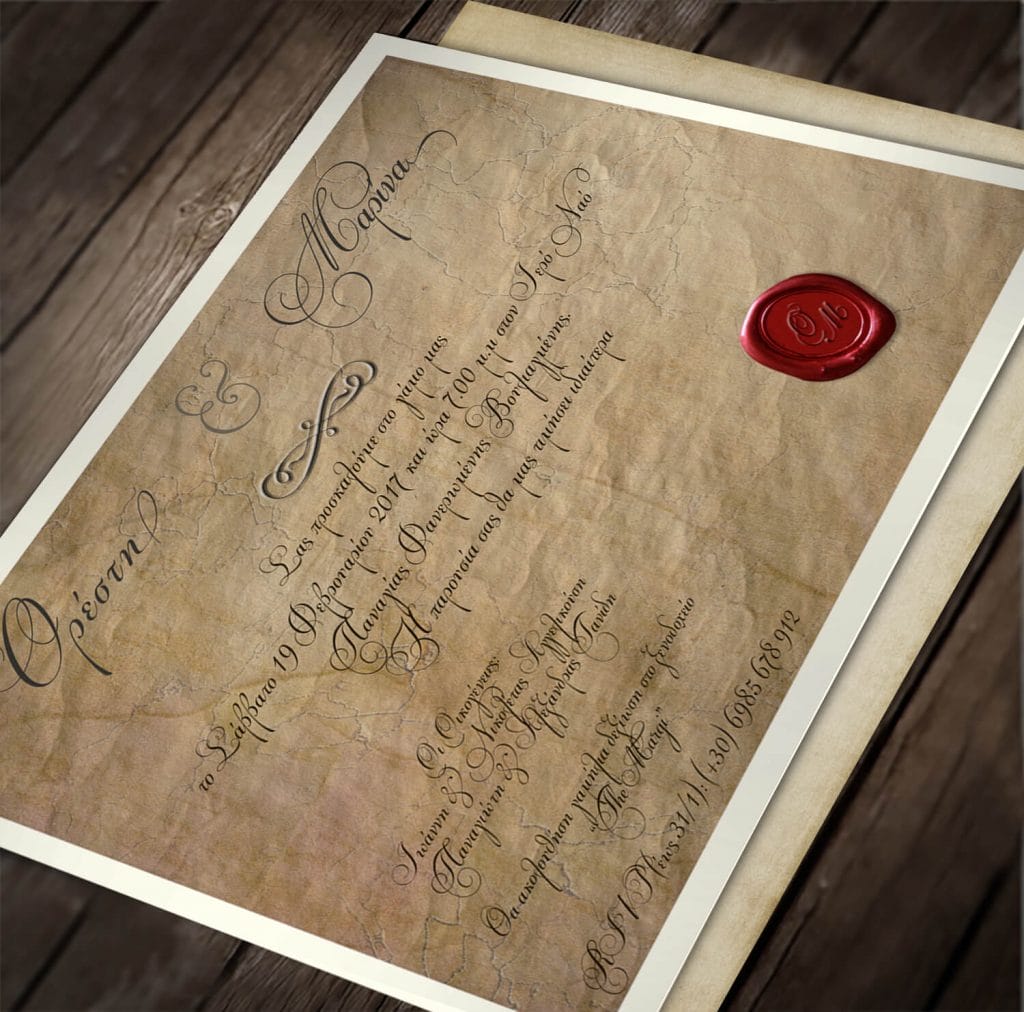 Ορέστη & Μαρίνα
Σας προσκαλούμε στο γάμο μας
το Σάββατο 19 Φεβρουαρίου 2017 και ώρα 7.00 μ.μ στον Ιερό Ναό
Παναγίας Φανερωμένης Βουλιαγμένης.
Η παρουσία σας θα μας τιμήσει ιδιαίτερα
Οι Οικογένειες:
Ιωάννη & Νικολέτας Αγγελικούση
Παναγιώτη & Αλεξάνδρας Γανίδη
Θα ακολουθήσει γαμήλια δεξίωση στο ξενοδοχείο
“The Margi”
RSVP (έως 31/1): (+30) 6985 678 912
OM